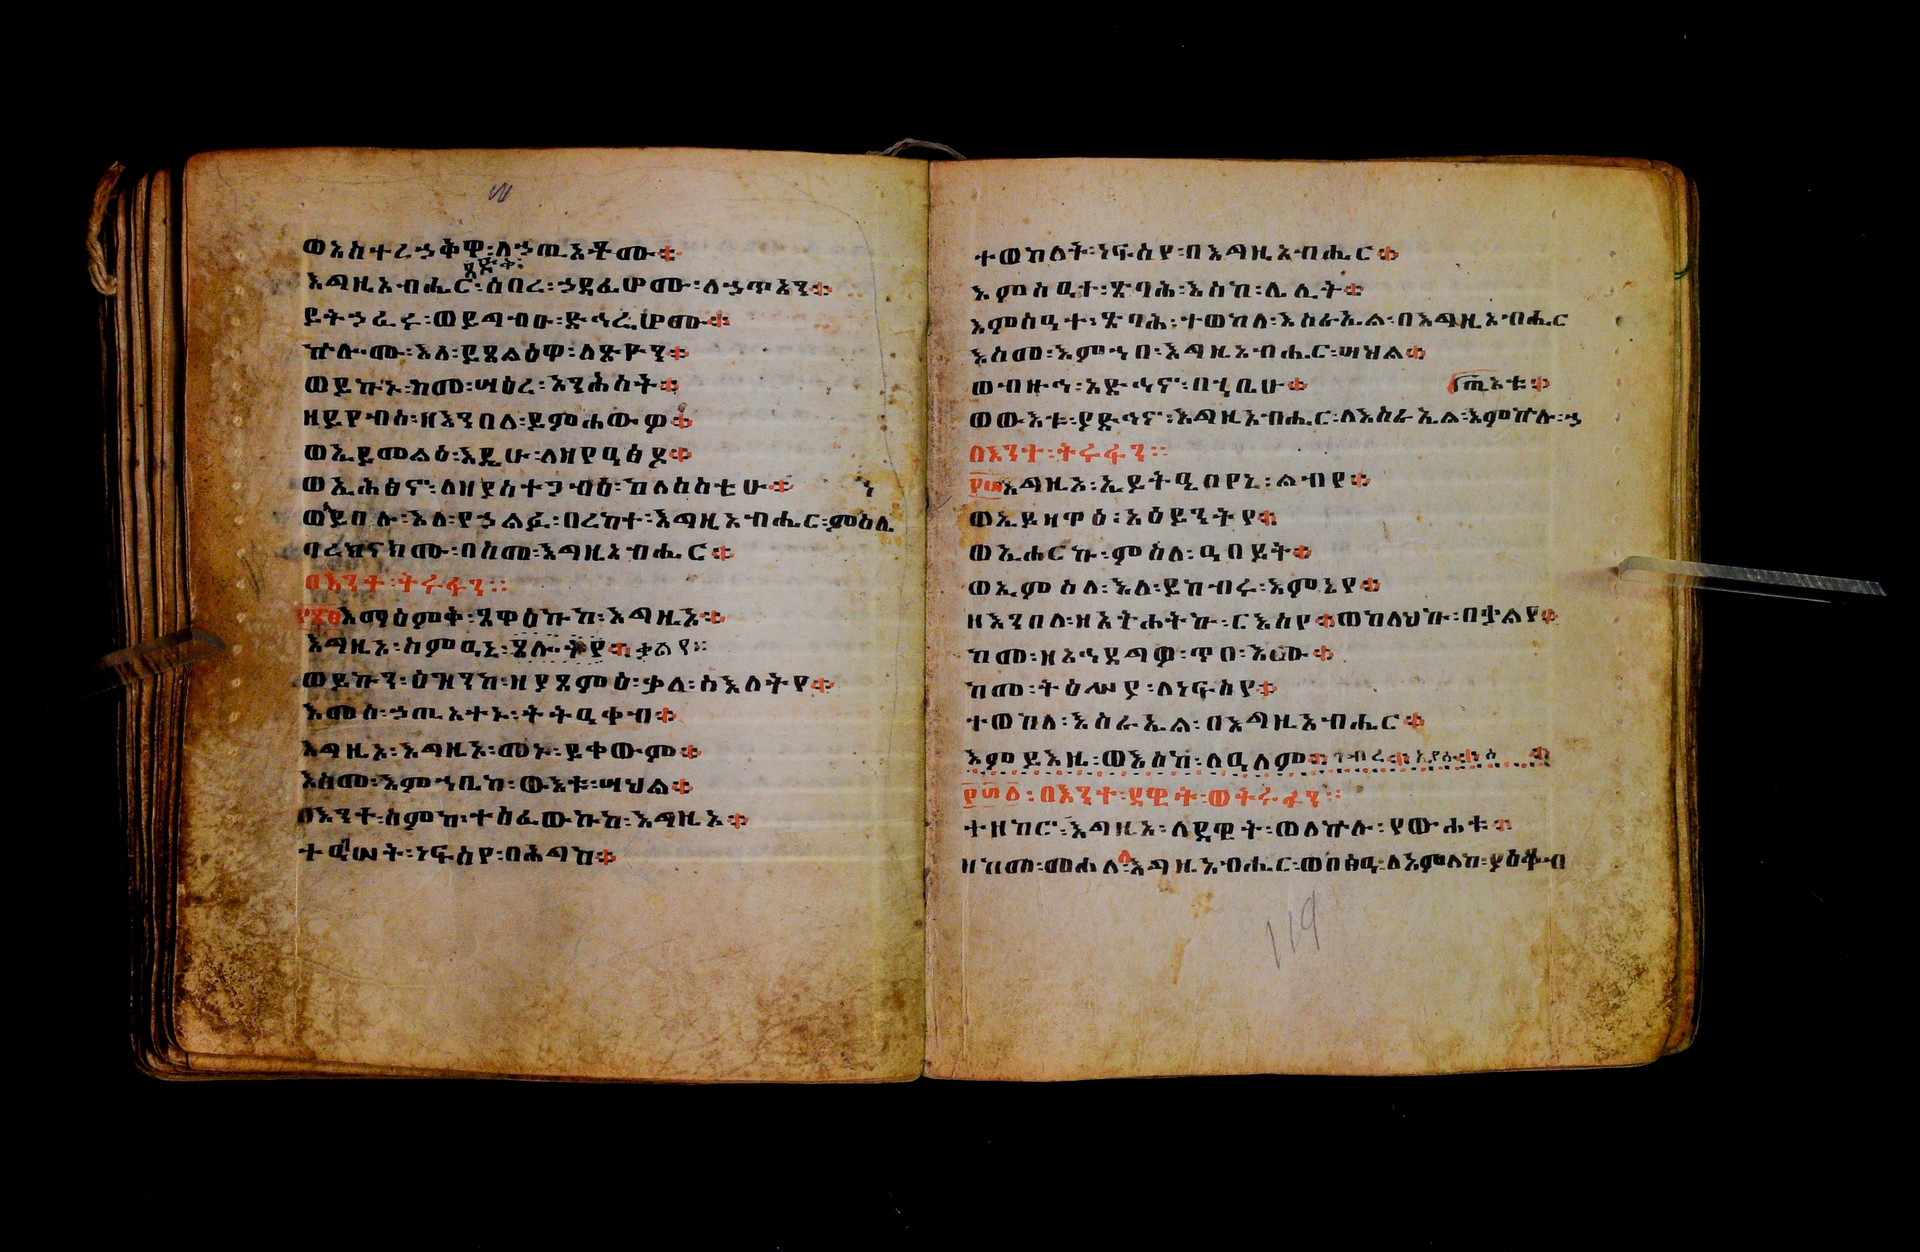 ወአስተረኃቅዋ፡ለኃጢአቶሙ፨
ጻድቅ፡
እግዚአብሔር፡ሰበረ፡ኃያፈሆሙ፡ለኃጥአን፨
ይትኃፈሩ፡ወይግብኡ፡ድኅሬሆሙ፨
ኵሎሙ፡እለ፡ይጸልዕዋ፡ለጽዮን፨
ወይኩኑ፡ከመ፡ሣዕረ፡አንሕስት፨
ዘይየብስ፡ዘእንበለ፡ይምሐውዎ፨
ወኢይመልዕ፡እዴሁ፡ለዘየዓፅዶ፨
ወኢሕፅኖ፡ለዘያስተጋብዕ፡ከለስስቲሁ፨
ወይበሉ፡እለ፡የኃልፉ፡በረከተ፡እግዚአብሔር፡ምስሌ
ባረክናክሙ፡በስመ፡እግዚአብሔር፨
በእንተ፡ትሩፋን፡፡
፻፳፱እማዕምቅ፡ጸዋዕኩከ፡እግዚኦ፨
እግዚኦ፡ስምዓኒ፡ጸሎትየ፨ቃልየ፡፡
ወይኩን፡ዕዝንከ፡ዘያጸምዕ፡ቃለ፡ስእለትየ፨
እመሰ፡ኃጢአተኑ፡ትትዓቀብ፨
እግዚኦ፡እግዚኦ፡መኑ፡ይቀውም፨
እስመ፡እምኀቤከ፡ውእቱ፡ሣህል፨
በእንተ፡ስምከ፡ተሰፈውኩከ፡እግዚኦ፨
ተዓገሠት፡ነፍስየ፡በሕግከ፨
ተወከለት፡ነፍስየ፡በእግዚአብሔር፨
እምሰዓተ፡ጽባሕ፡እስከ፡ሌሊት፨
እምሰዓተ፡ጽባሕ፡ተወከለ፡እስራኤል፡በእግዚአብሔር
እስመ፡እምኀበ፡እግዚአብሔር፡ሣህል፨
ወብዙኅ፡አድኅኖ፡በኀቤሁ፨
ጢአቱ፨
ወውእቱ፡ያድኅኖ፡እግዚአብሔር፡ለእስራኤል፡እምኵሉ፡ኃ
በእንተ፡ትሩፋን፡፡
፻፴እግዚኦ፡ኢይትዓበየኒ፡ልብየ፨
ወኢይዘዋዕ፡አዕይንትየ፨
ወኢሐርኩ፡ምስለ፡ዓበይት፨
ወኢምስለ፡እለ፡ይከብሩ፡እምኔየ፨
ዘእንበለ፡ዘአትሐትኩ፡ርእስየ፨ወከለህኩ፡በቃልየ፨
ከመ፡ዘአኀደግዎ፡ጥበ፡እሙ፨
ከመ፡ትዕሥያ፡ለነፍስየ፨
ተወከለ፡እስራኤል፡በእግዚአብሔር፨
እምይእዜ፡ወእስከ፡ለዓለም፨
፻፴፩፡በእንተ፡ዳዊት፡ወትሩፋን፡፡
ተዘከሮ፡እግዚኦ፡ለዳዊት፡ወለኵሉ፡የውሐቱ፨
ዘከመ፡መሐለ፡እግዚአብሔር፡ወበፅዓ፡ለአምላከ፡ያዕቆብ
119